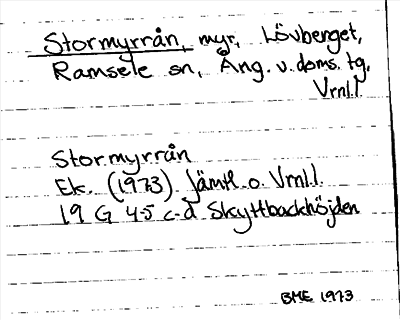 Stormyrrån, myr, Lövberget,
Ramsele sn, Ång. v. doms. tg,
Vrnl.l.
Stormyrrån
Ek. (1973) Jämtl. o. Vrnl.l.
19 G 4-5 c-d Skyttbackhöjden
BME 1973